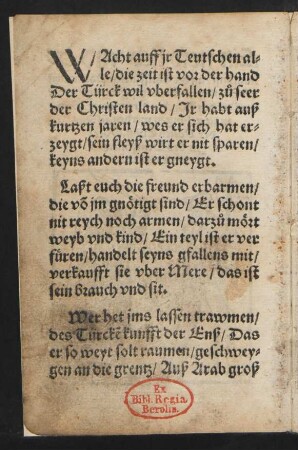 WAcht auff jr Teutschen al-
le/die zeit ist vor der hand
Der Türck wil vberfallen/zů seer
der Christen land/Jr habt auß
kurtzen jaren/wes er sich hat er-
zeygt/sein fleyß wirt er nit sparen/
keyns andern ist er gneygt.
Laßt euch die freund erbarmen/
die võ jm gnötigt sind/Er schont
nit reych noch armen/darzů mört
weyb vnd kind/Ein teyl ist er ver
füren/handelt seyns gfallens mit/
verkaufft sie vber Mere/das ist
sein brauch vnd sit.
Wer het jms lassen trawmen/
des Türckẽ kunfft der Enß/Das
er so weyt solt raumen/geschwey-
gen an die grentz/Auß Arab groß
Ex
Bibl. Regia
Berolin.